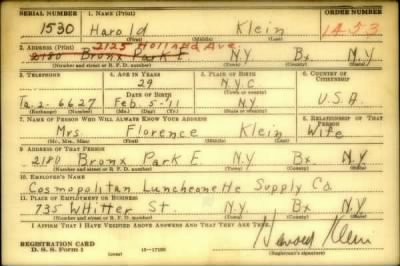 SERIAL NUMBER 1. NAME (Print) ORDER NUMBER
1530 Harold Klein 1453
(First) (Middle) (Last)
2125 Holland Ave
2. ADDRESS (Print)
2180 Bronx Park E N.Y Bx N.Y
(Number and street or R. F. D. number) (Town) (County) (State)
3. TELEPHONE 4. AGE IN YEARS 5. PLACE OF BIRTH 6. COUNTRY OF CITIZENSHIP
29 N.Y.C
DATE OF BIRTH (Town or county)
Ta. 2-6627 Feb. 5-11 N.Y U.S.A.
(Exchange) (Number) (Mo.) (Day) (Yr.) (State or country)
7. NAME OF PERSON WHO WILL ALWAYS KNOW YOUR ADDRESS 8. RELATIONSHIP OF THAT PERSON
Mrs. Florence Klein Wife
(Mr., Mrs., Miss) (First) (Middle) (Last)
9. ADDRESS OF THAT PERSON
2180 Bronx Park E. N.Y Bx N.Y
(Number and street or R. F. D. number) (Town) (County) (State)
10. EMPLOYER'S NAME
Cosmopolitan Luncheonette Supply Co
11. PLACE OF EMPLOYMENT OR BUSINESS
735 Whitter St. N.Y Bx N.Y
(Number and street or R. F. D. number) (Town) (County) (State)
I AFFIRM THAT I HAVE VERIFIED ABOVE ANSWERS AND THAT THEY ARE TRUE.
REGISTRATION CARD
D. S. S. Form 1 (over) 16—17105 Harold Klein
(Registrant's signature)